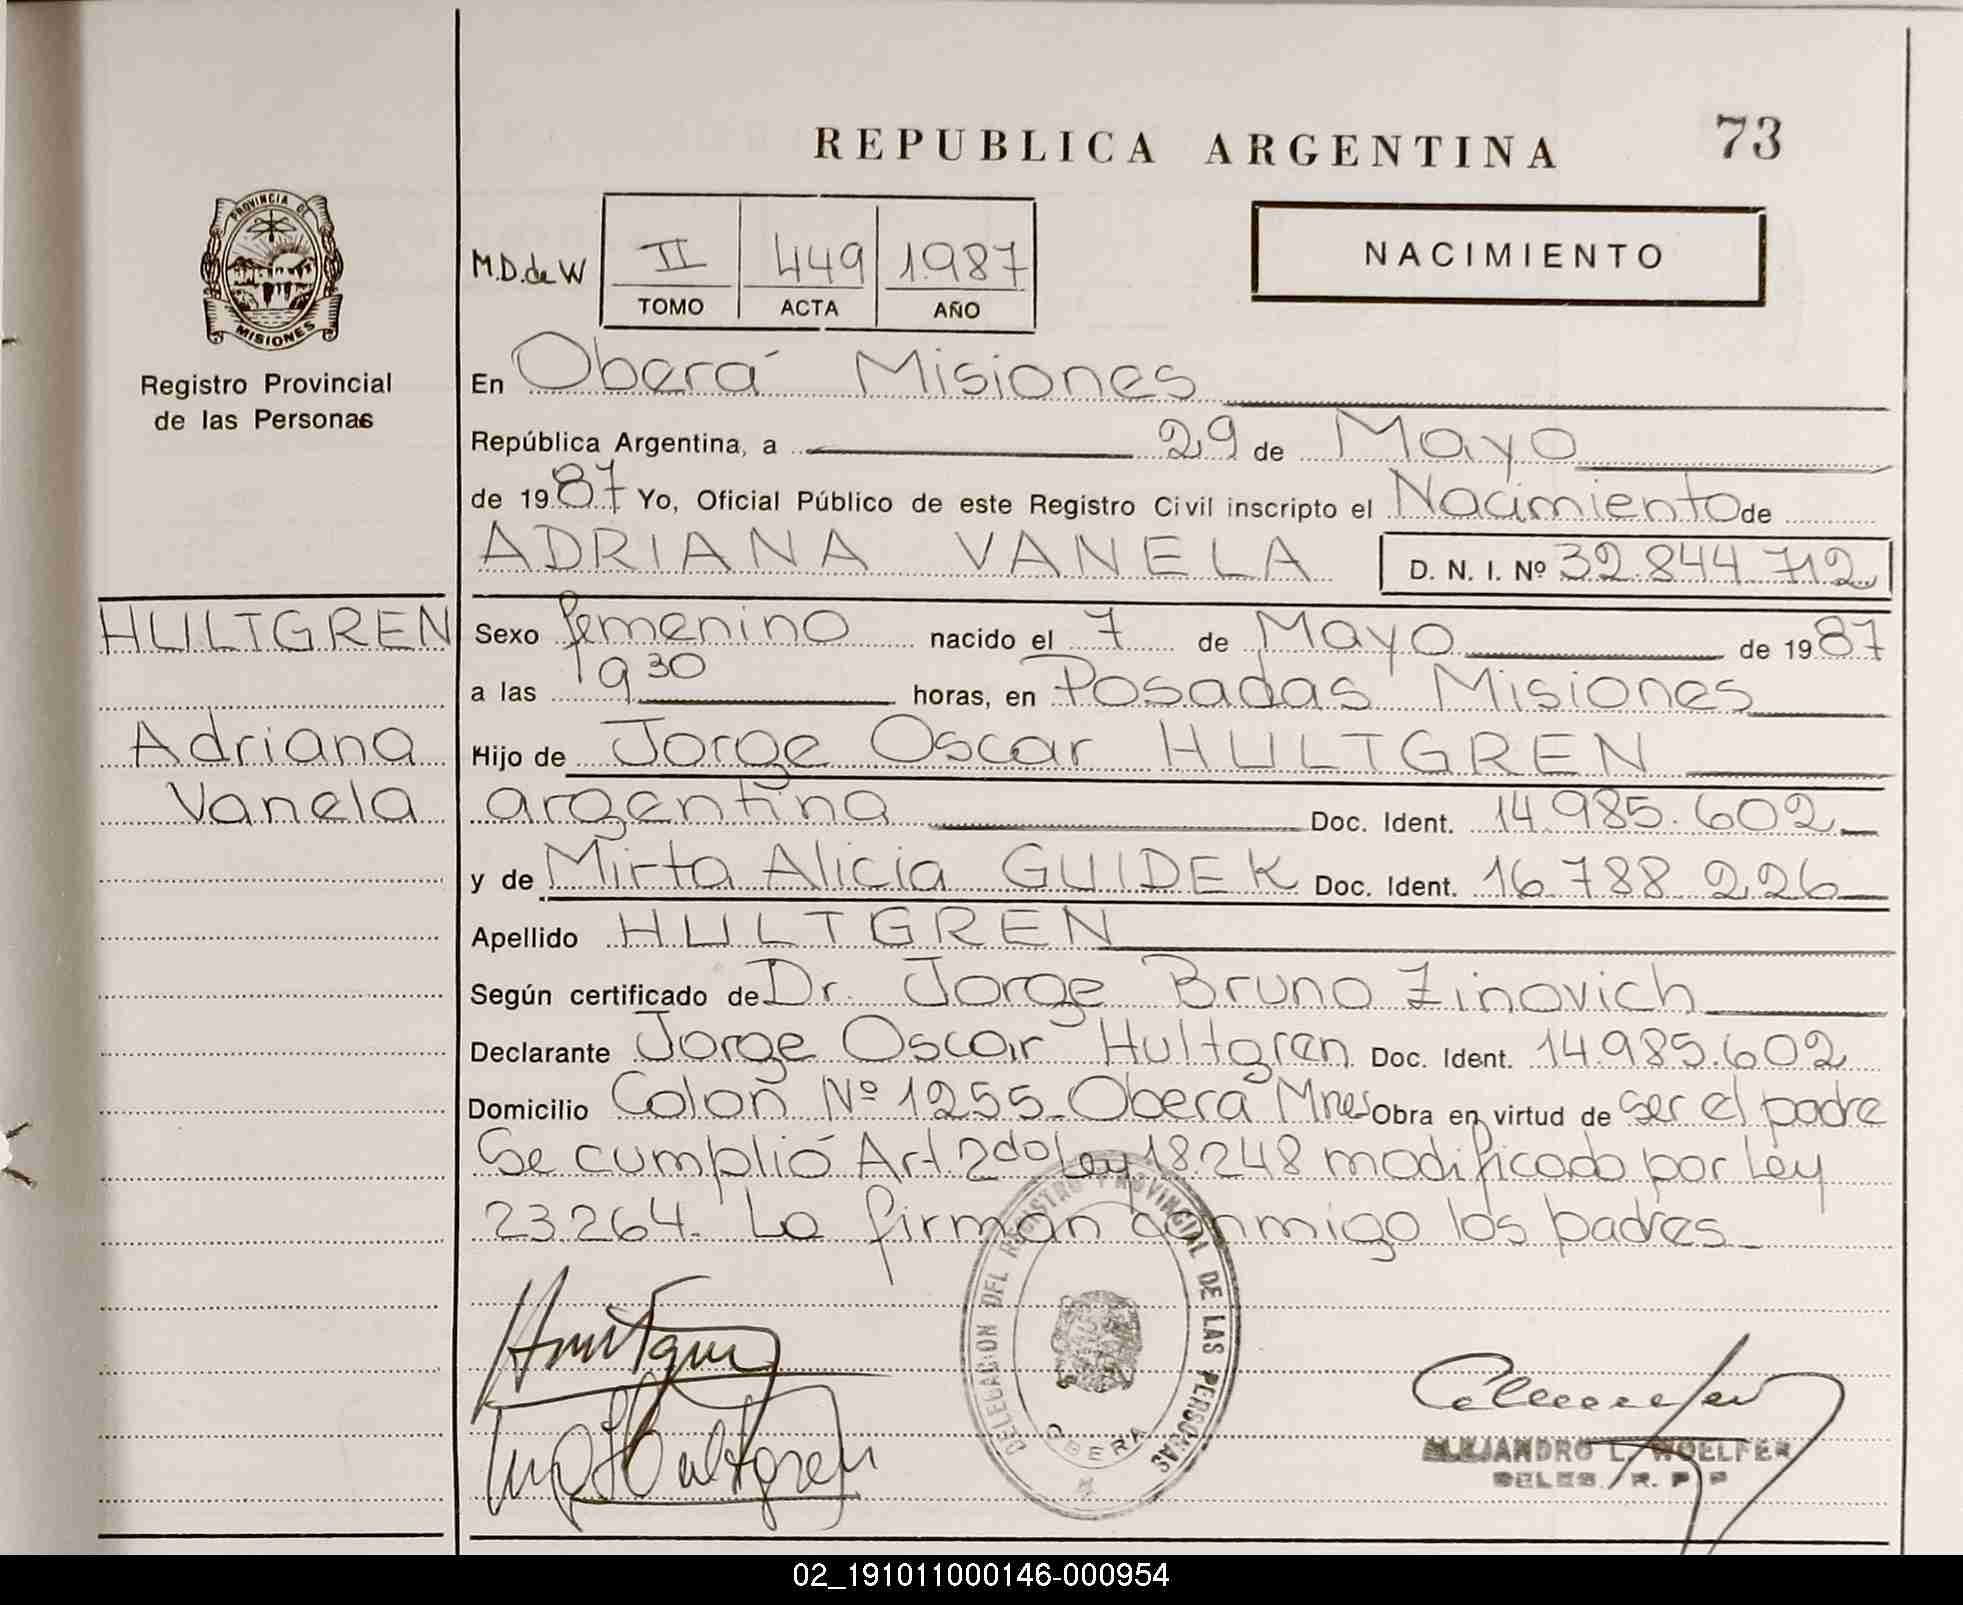 REPUBLICA ARGENTINA 73
PROVINCIA DE
MISIONES
Registro Provincial
de las Personas
M.D. de W II 449 1987
TOMO ACTA AÑO
NACIMIENTO
En Oberá Misiones
República Argentina, a 29 de Mayo
de 1987 Yo, Oficial Público de este Registro Civil inscripto el Nacimiento de
ADRIANA VANELA D. N. I. Nº 32.844.712
HULTGREN
Adriana
Vanela
Sexo femenino nacido el 7 de Mayo de 1987
a las 19 30 horas, en Posadas Misiones
Hijo de Jorge Oscar HULTGREN
argentina Doc. Ident. 14.985.602
y de Mirta Alicia GUIDEK Doc. Ident. 16 788 226
Apellido HULTGREN
Según certificado de Dr. Jorge Bruno Zinovich
Declarante Jorge Oscar Hultgren Doc. Ident. 14.985.602
Domicilio Colon Nº 1255 Oberá Mnes Obra en virtud de ser el padre
Se cumplió Art 2do Ley 18.248 modificado por Ley
23.264. La firman conmigo los padres
DELEGACION DEL REGISTRO PROVINCIAL DE LAS PERSONAS
OBERA
ALEJANDRO L. WOELFER
DELEG. R. P. P
02_191011000146-000954